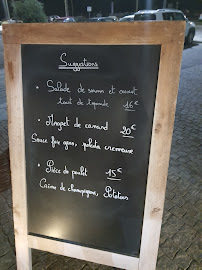 Suggestions
• Salade de saumon et avocat
haut de légende 16€
• Magret de canard 20€
Sauce foie gras, polenta crémeuse
• Pièce de poulet 15€
Crème de champignons, Potatoes